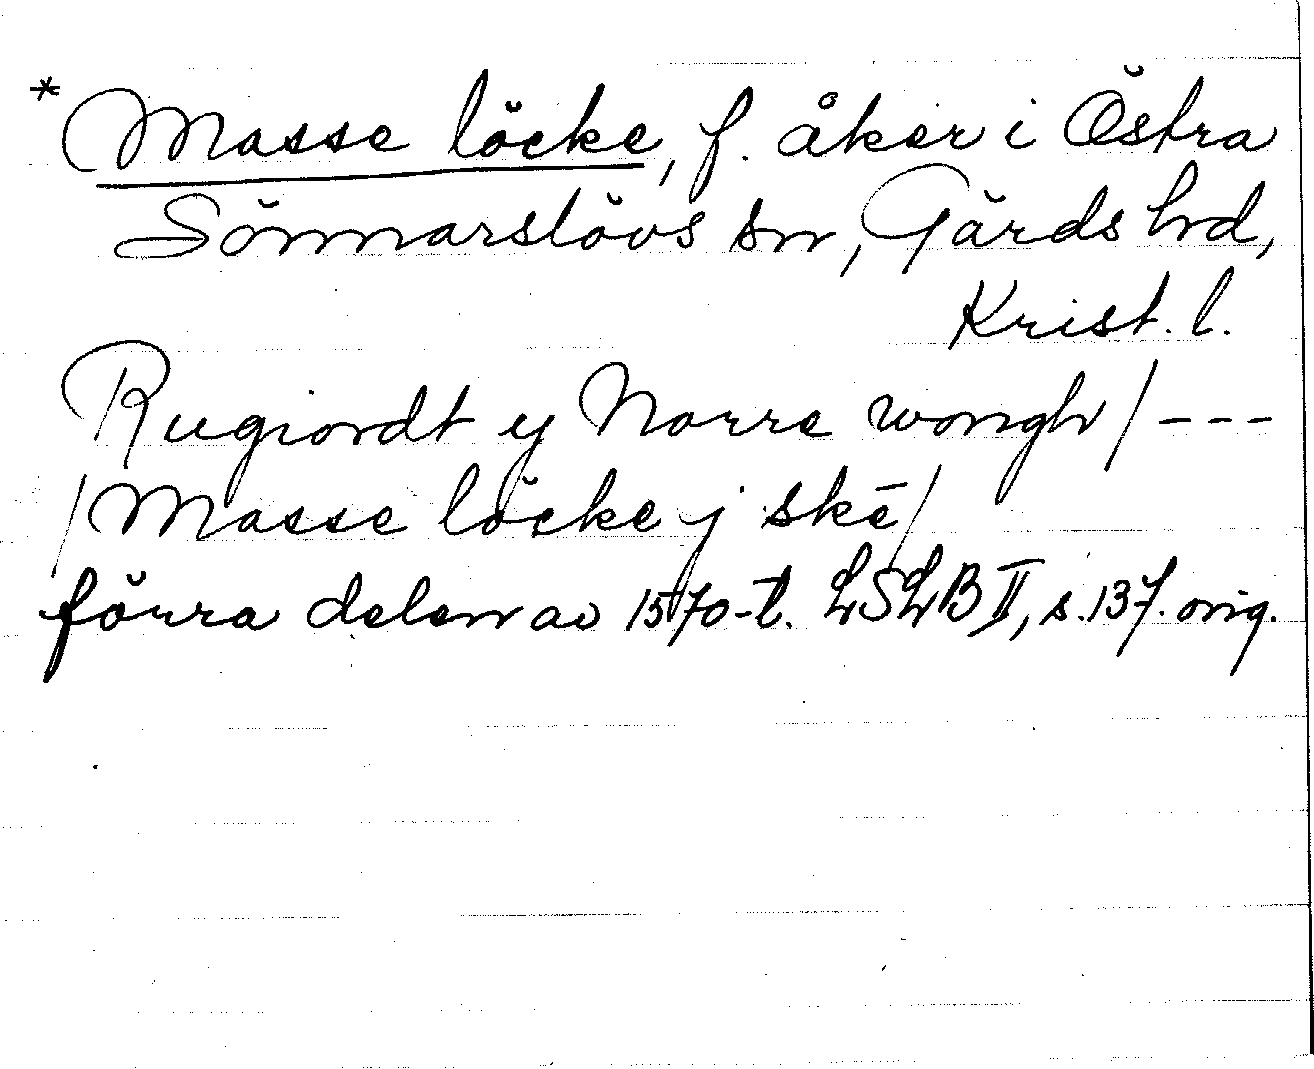 * Masse löcke, f. åker i Östra
Sönnarslövs sn, Gärds hd,
Krist. l.
Rugiordt y Norre wongh / ---
/ Masse löcke j skē /
förra delen av 1570-t. LSLB II, s. 137. orig.